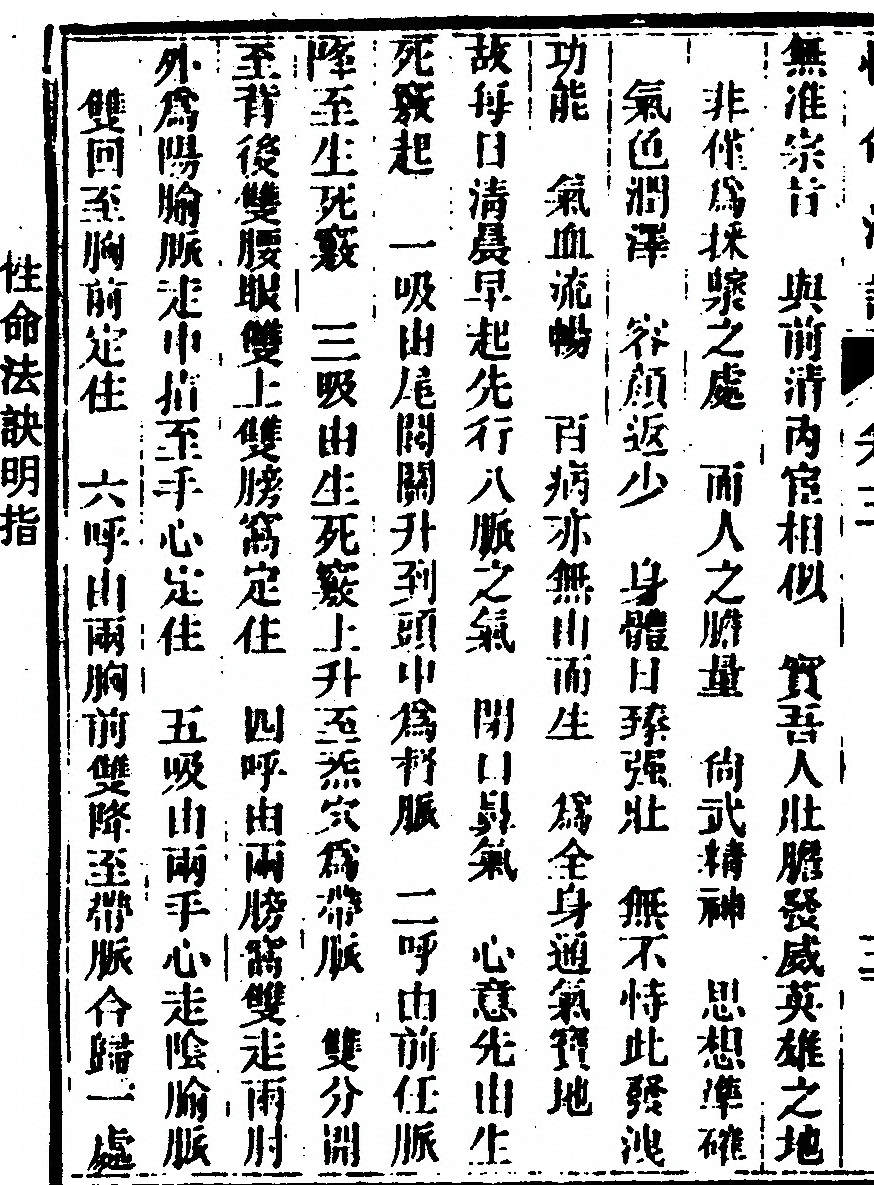 無准宗旨　與前清內宦相似　實吾人壯膽發威英雄之地
非僅爲採藥之處　而人之膽量　尙武精神　思想準確
氣色潤澤　容顏返少　身體日臻强壯　無不恃此發洩
功能　氣血流暢　百病亦無由而生　爲全身通氣寶地
故每日清晨早起先行八脈之氣　閉口鼻氣　心意先由生
死竅起　一吸由尾閭關升到頭中爲督脈　二呼由前任脈
降至生死竅　三吸由生死竅上升至炁穴爲帶脈　雙分開
至背後雙腰眼雙上雙膀窩定住　四呼由兩膀窩雙走兩肘
外爲陽腧脈走中指至手心定住　五吸由兩手心走陰腧脈
雙回至胸前定住　六呼由兩胸前雙降至帶脈合歸一處
性命法訣明指